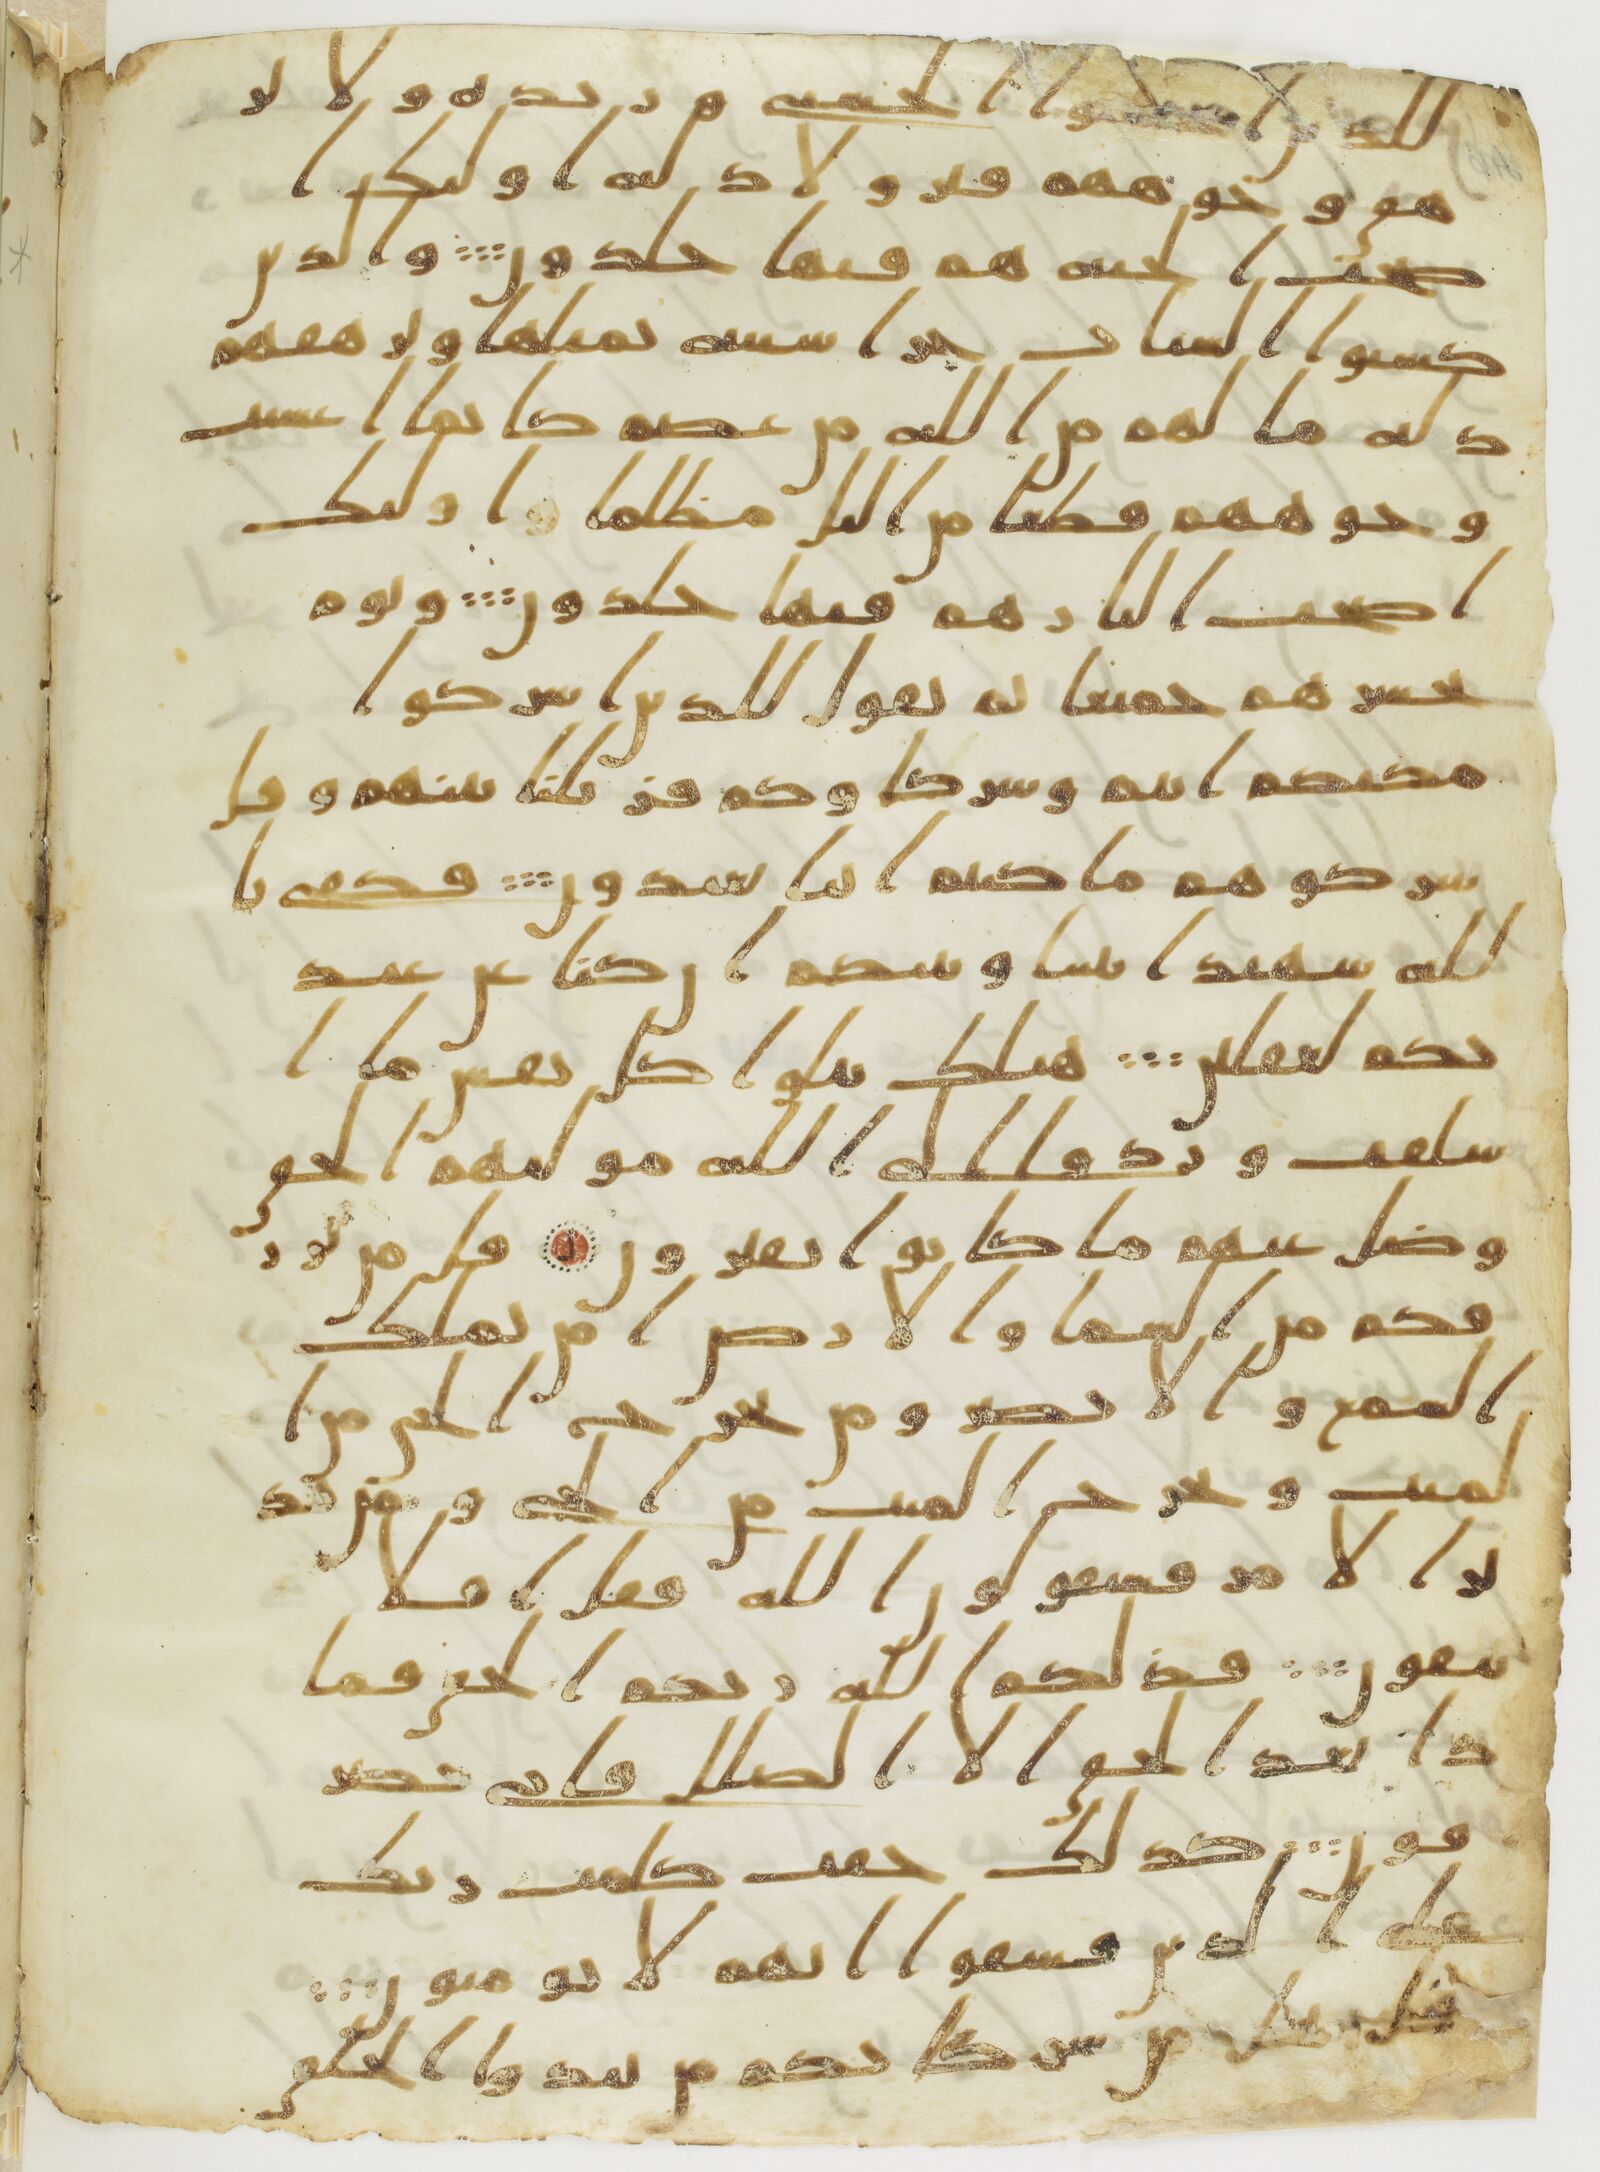 للذين احسنوا الحسنى وزيده ولا ير
هق وجوههم قتر ولا ذله اوليك ا
صحب الجنه هم فيها خلدون والذين
كسبوا السيات جزا سييه بمثلها وترهقهم
ذله ما لهم من الله من عصم كانما اغشيت
وجوههم قطعا من اليل مظلما اوليك
اصحب النار هم فيها خلدون ويوم
نحشرهم جميعا ثم نقول للذين اشركوا
مكنكم انتم وشركاوكم فزيلنا بينهم وقل
شركوهم ما كنتم ايانا تعبدون فكفى با
لله شهيدا بيننا وبينكم ان كنا عن عبد
تكم لغفلين هنلك تبلوا كل نفس ما ا
سلفت وردوا الى الله موليهم الحق
وضل عنهم ما كانوا يفترون قل من ير
زقكم من السما والارض امن يملك
السمع والابصر ومن يخرج الحى من ا
لميت ويخرج الميت من الحى ومن يد
بر الامر فسيقولون الله فقل افلا
تتقون فذلكم الله ربكم الحق فما
ذا بعد الحق الا الضلل فانى تصر
فون كذلك حقت كلمت ربك
على الذين فسقوا انهم لا يومنون
قل هل من شركايكم من يبدوا الخلق